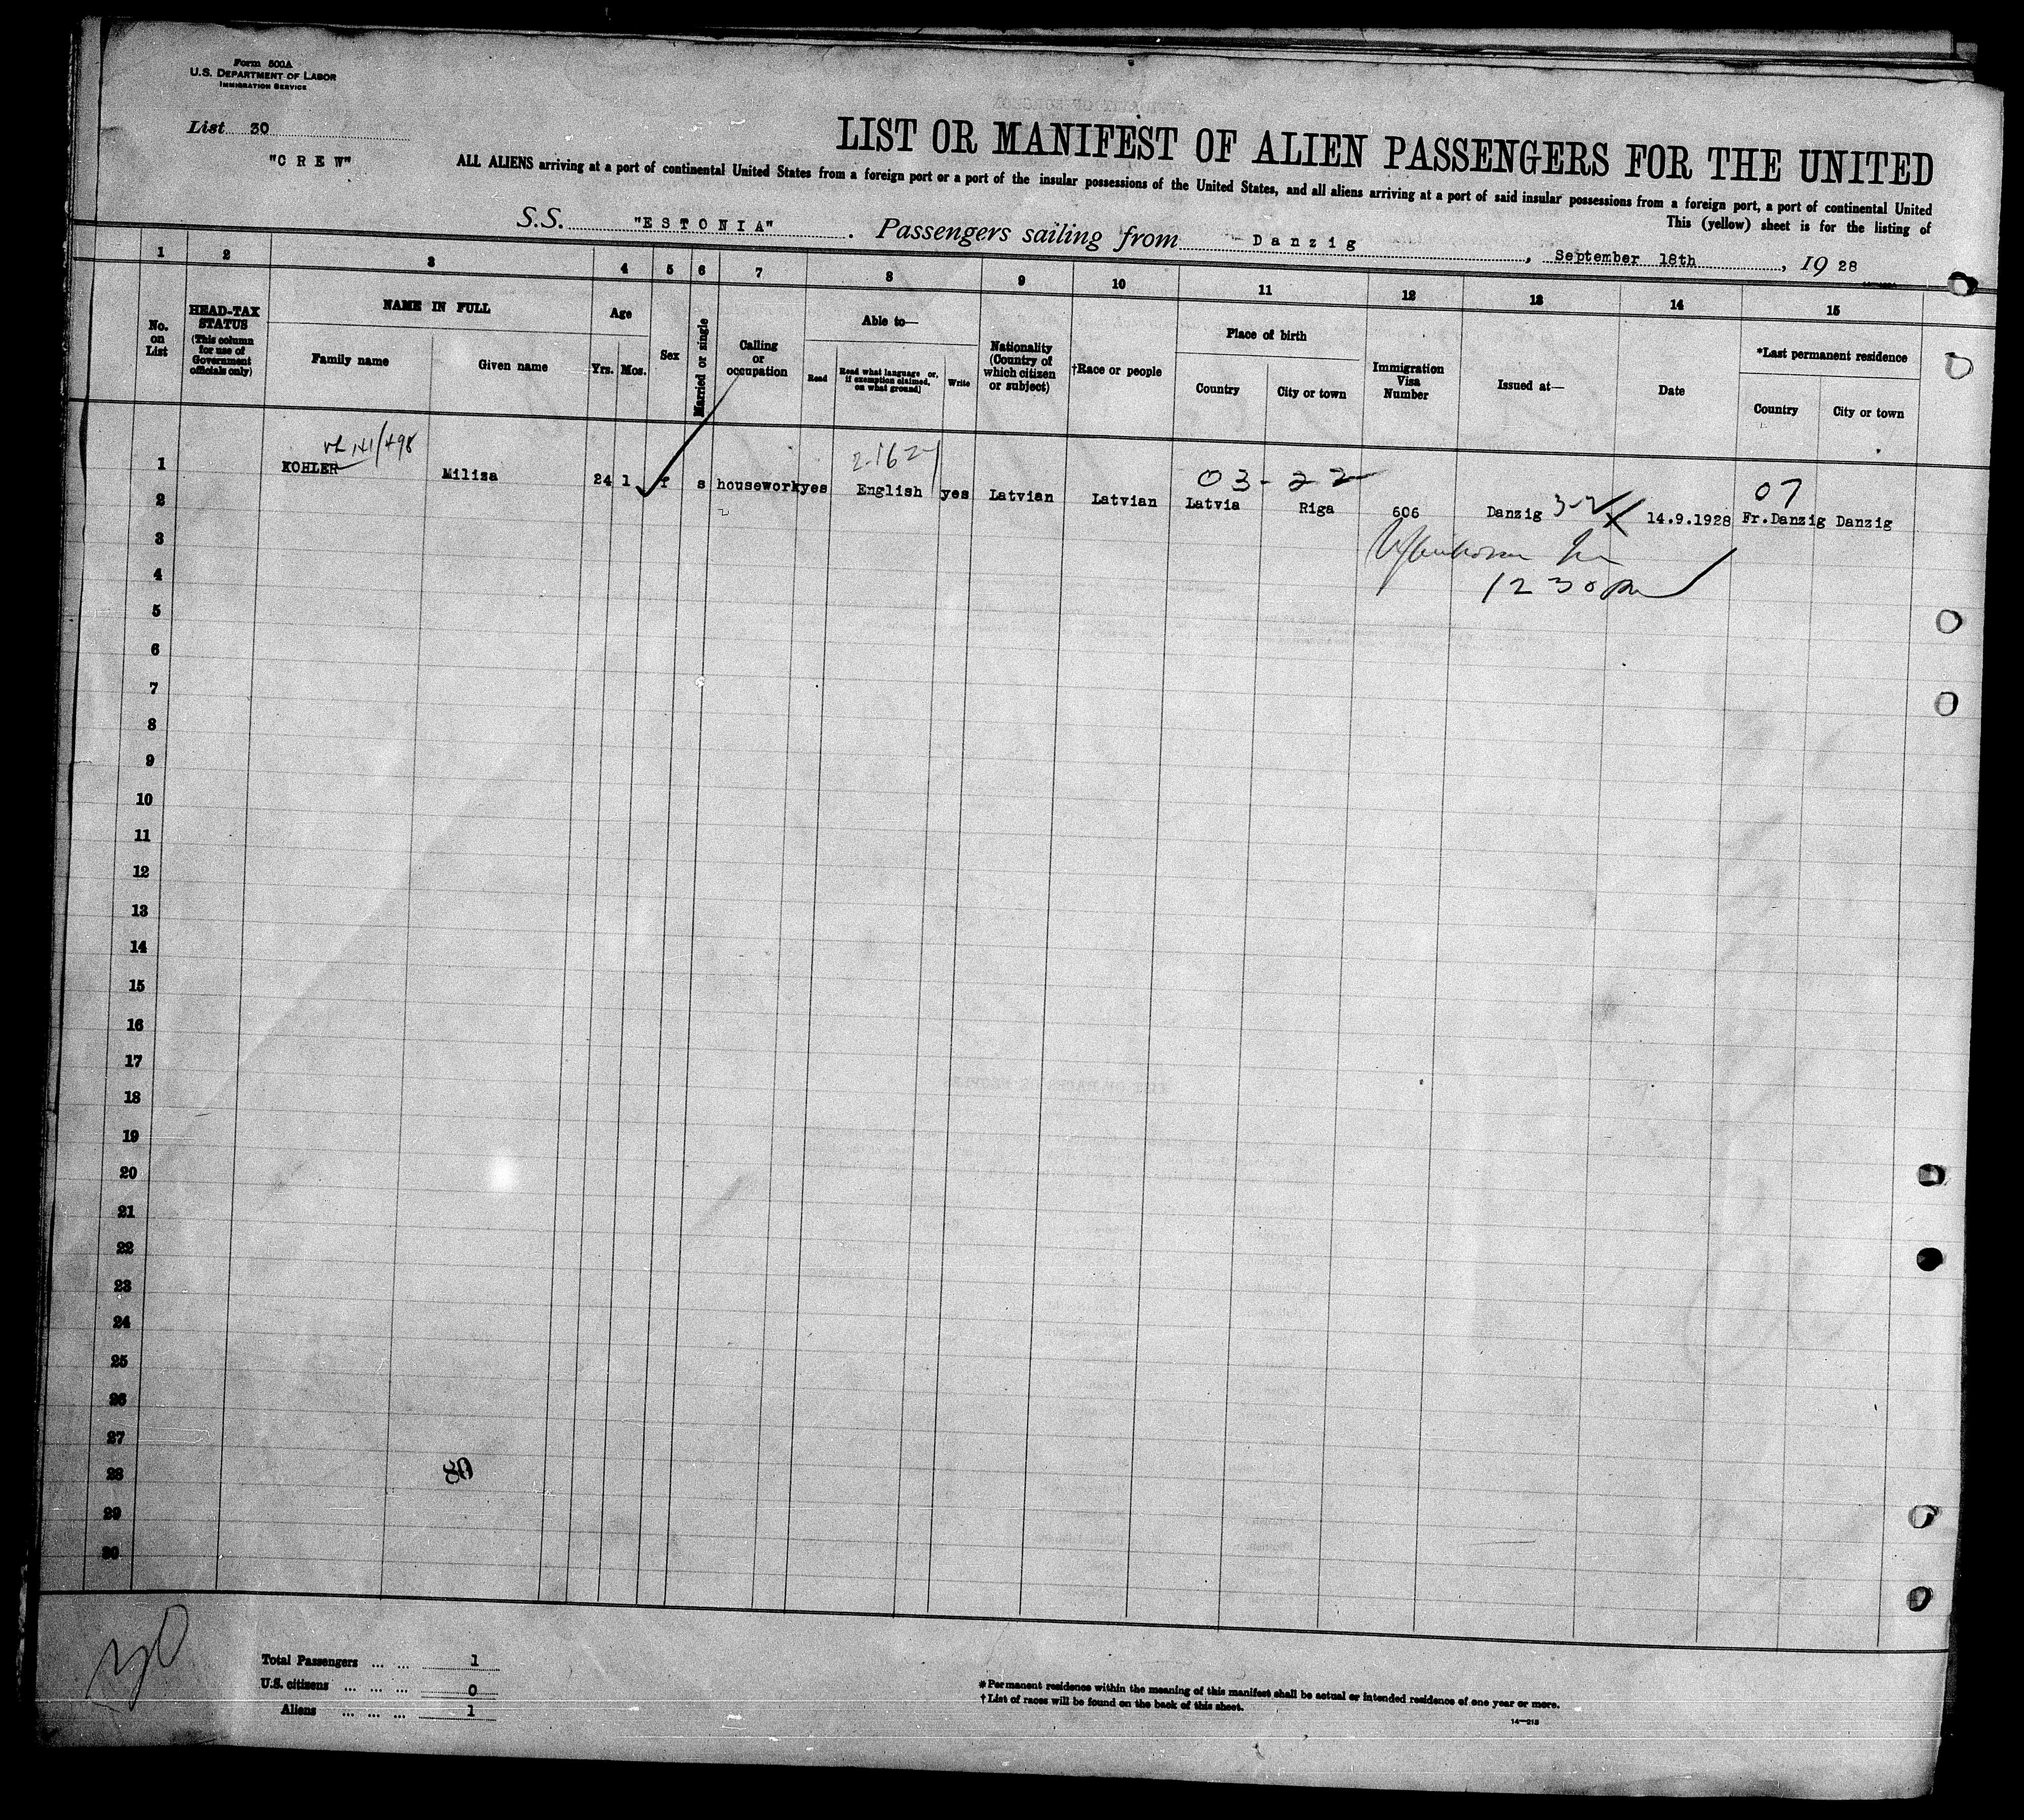 Form 500A
U.S. DEPARTMENT OF LABOR
IMMIGRATION SERVICE
List 30
"C R E W"
LIST OR MANIFEST OF ALIEN PASSENGERS FOR THE UNITED
ALL ALIENS arriving at a port of continental United States from a foreign port or a port of the insular possessions of the United States, and all aliens arriving at a port of said insular possessions from a foreign port, a port of continental United
This (yellow) sheet is for the listing of
S.S. "E S T O N I A". Passengers sailing from - D a n z i g, September 18th, 19 28
1 2 3 4 5 6 7 8 9 10 11 12 13 14 15
No. on List
HEAD-TAX STATUS (This column for use of Government officials only)
NAME IN FULL
Family name
Given name
Age
Yrs. Mos.
Sex
Married or single
Calling or occupation
Able to—
Read
Read what language or, if exemption claimed, on what ground]
Write
Nationality (Country of which citizen or subject)
†Race or people
Place of birth
Country
City or town
Immigration Visa Number
Issued at—
Date
*Last permanent residence
Country
City or town
141/498
2-162
03-22
07
1 KOHLER Milisa 24 1 f s housework yes English yes Latvian Latvian Latvia Riga 606 Danzig 14.9.1928 Fr.Danzig Danzig
12 30 pm
2
3
4
5
6
7
8
9
10
11
12
13
14
15
16
17
18
19
20
21
22
23
24
25
26
27
28
29
30
80
30
Total Passengers ... ... 1
U.S. citizens ... ... ... 0
Aliens ... ... ... 1
* Permanent residence within the meaning of this manifest shall be actual or intended residence of one year or more.
† List of races will be found on the back of this sheet.
14—215